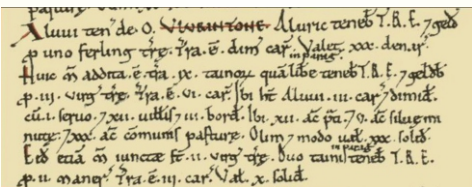 pasturę.
Aluui ten& de. O. VLVRINTONE. Aluric teneb T.R.E. 7 geld
p uno ferling træ. Tra. ē. dim car. Valet xxx. den. in paris
Huic m̃ addita. ē. tra. ix. tainoꝝ quā libe teneb T.R.E. 7 geldb
p. iii. virg træ. Tra. ē. vi. car. Ibi ht Aluui. iii. car 7 dimid.
cū. i. seruo. 7 xii. uittis 7 iii. bord. Ibi. xii. ac p̃a. 7 ac siluę mi
nutę. 7 xxx. ac cōmunis pasturę. Olim 7 modo ual. xxx. solid.
Eid etiā m̃ iunctæ st. ii. virg træ. Duo taini in paris teneb T.R.E.
p. ii. maner. Tra. ē. iii. car. Val. x. solid.